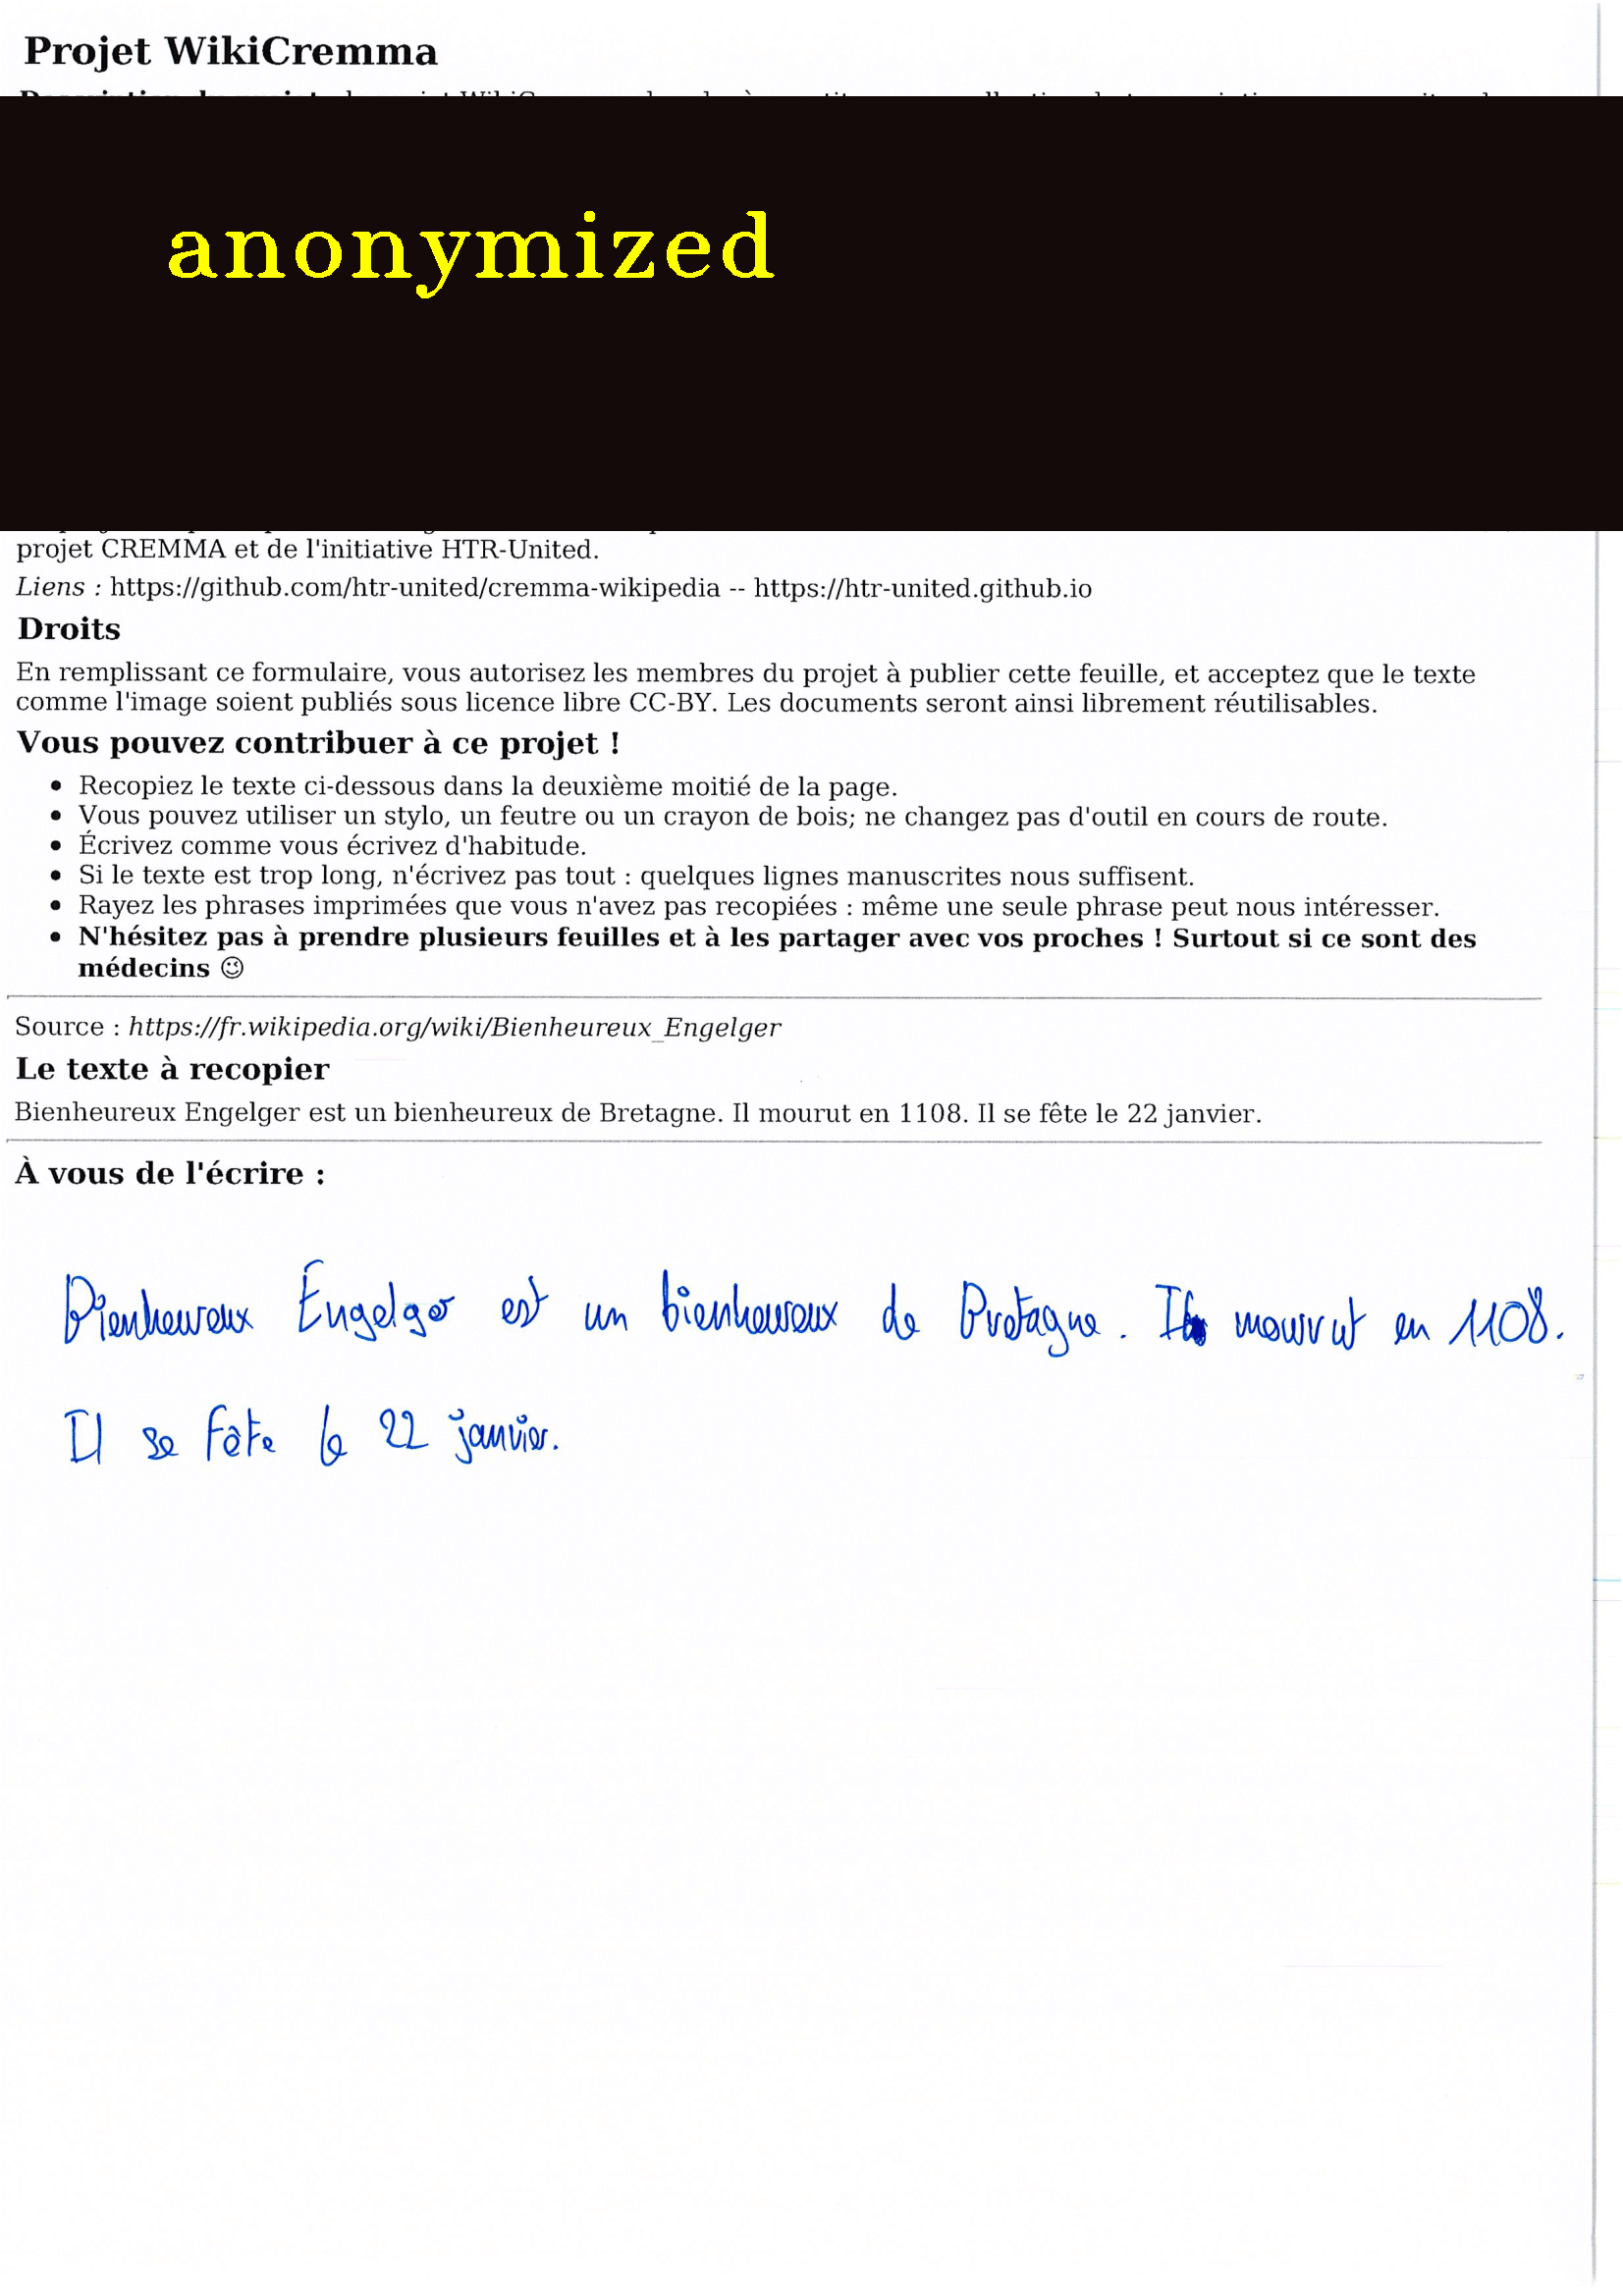 Projet WikiCremma
anonymized
projet CREMMA et de l'initiative HTR-United.
Liens : https://github.com/htr-united/cremma-wikipedia -- https://htr-united.github.io
Droits
En remplissant ce formulaire, vous autorisez les membres du projet à publier cette feuille, et acceptez que le texte
comme l'image soient publiés sous licence libre CC-BY. Les documents seront ainsi librement réutilisables.
Vous pouvez contribuer à ce projet !
• Recopiez le texte ci-dessous dans la deuxième moitié de la page.
• Vous pouvez utiliser un stylo, un feutre ou un crayon de bois; ne changez pas d'outil en cours de route.
• Écrivez comme vous écrivez d'habitude.
• Si le texte est trop long, n'écrivez pas tout : quelques lignes manuscrites nous suffisent.
• Rayez les phrases imprimées que vous n'avez pas recopiées : même une seule phrase peut nous intéresser.
• N'hésitez pas à prendre plusieurs feuilles et à les partager avec vos proches ! Surtout si ce sont des
médecins 😉
Source : https://fr.wikipedia.org/wiki/Bienheureux_Engelger
Le texte à recopier
Bienheureux Engelger est un bienheureux de Bretagne. Il mourut en 1108. Il se fête le 22 janvier.
À vous de l'écrire :
Bienheureux Engelger est un bienheureux de Bretagne. Il mourut en 1108.
Il se fête le 22 janvier.